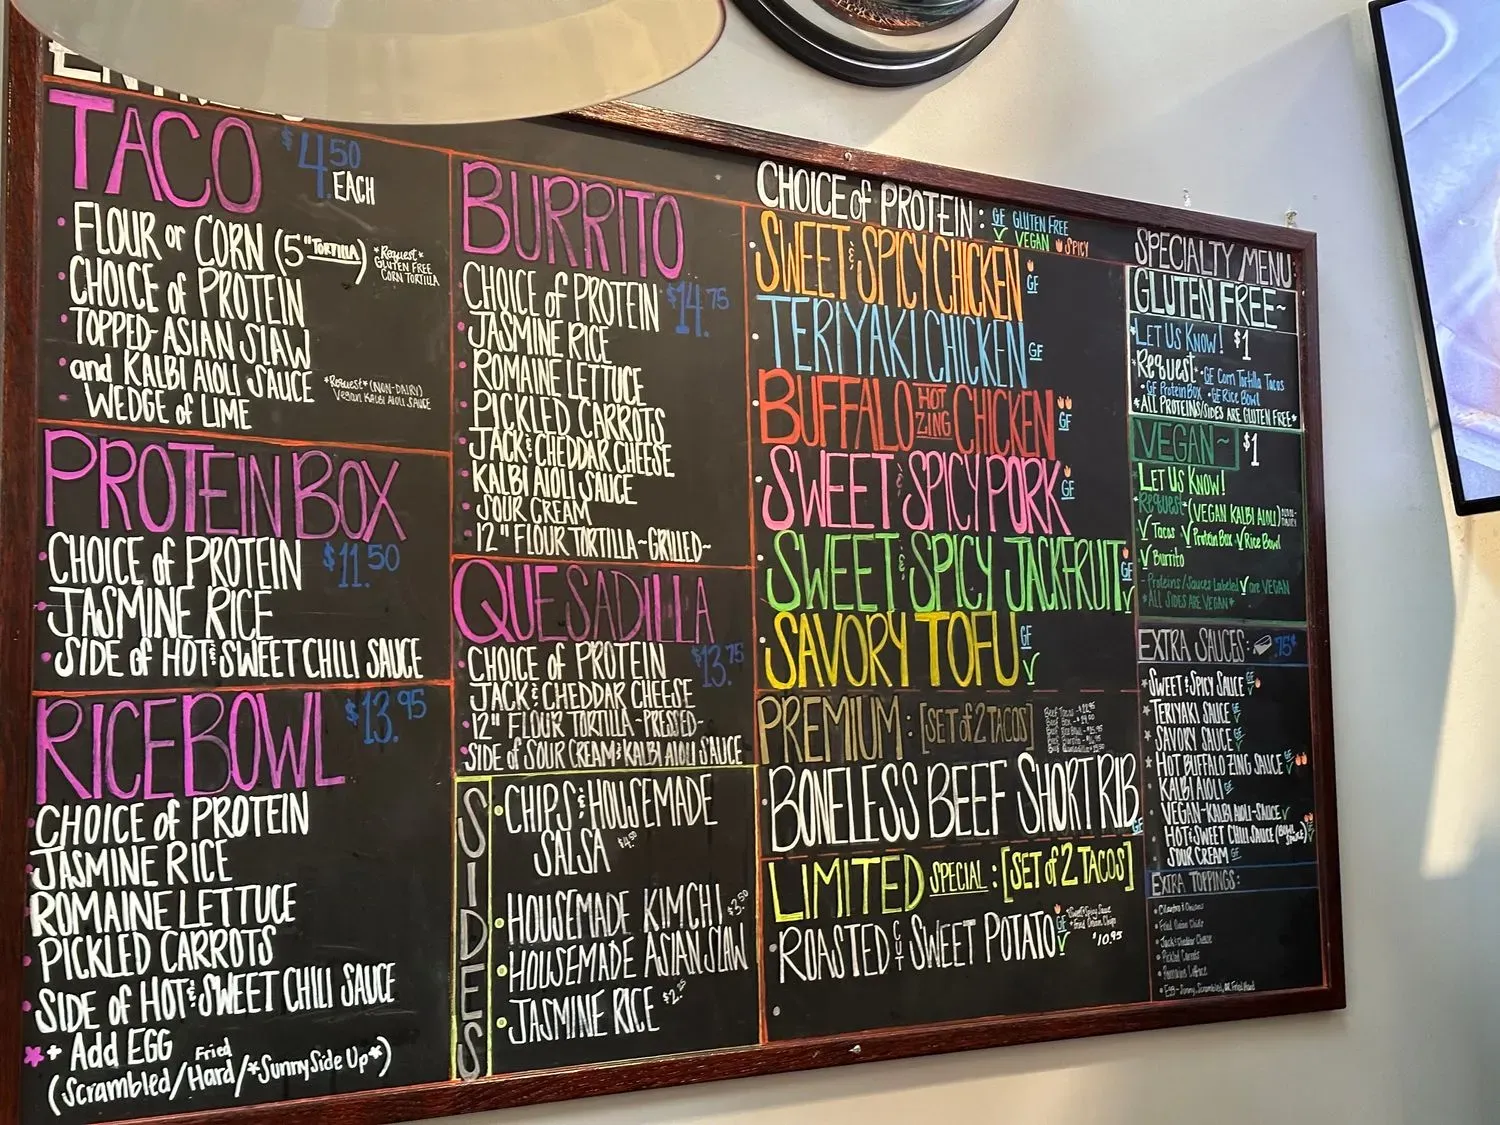 TACO $4.50 EACH
FLOUR or CORN (5" TORTILLA)
*Request*
GLUTEN FREE
CORN TORTILLA
CHOICE of PROTEIN
TOPPED-ASIAN SLAW
and KALBI AIOLI SAUCE
*Request* (NON-DAIRY)
Vegan KALBI AIOLI SAUCE
WEDGE of LIME
PROTEIN BOX
CHOICE of PROTEIN $11.50
JASMINE RICE
SIDE of HOT & SWEET CHILI SAUCE
RICE BOWL $13.95
CHOICE of PROTEIN
JASMINE RICE
ROMAINE LETTUCE
PICKLED CARROTS
SIDE of HOT & SWEET CHILI SAUCE
+ Add EGG
(Scrambled/Fried Hard/*Sunny Side Up*)
BURRITO
CHOICE of PROTEIN $14.75
JASMINE RICE
ROMAINE LETTUCE
PICKLED CARROTS
JACK & CHEDDAR CHEESE
KALBI AIOLI SAUCE
SOUR CREAM
12" FLOUR TORTILLA-GRILLED-
QUESADILLA
CHOICE of PROTEIN $13.75
JACK & CHEDDAR CHEESE
12" FLOUR TORTILLA-PRESSED-
SIDE of SOUR CREAM & KALBI AIOLI SAUCE
SIDES
CHIPS & HOUSEMADE
SALSA $4.50
HOUSEMADE KIMCHI $3.50
HOUSEMADE ASIAN SLAW
JASMINE RICE $2.25
CHOICE of PROTEIN: GF GLUTEN FREE
✓ VEGAN SPICY
SWEET & SPICY CHICKEN GF
TERIYAKI CHICKEN GF
BUFFALO HOT ZING CHICKEN GF
SWEET & SPICY PORK GF
SWEET & SPICY JACKFRUIT GF ✓
SAVORY TOFU GF ✓
PREMIUM: [SET of 2 TACOS]
BONELESS BEEF SHORT RIB GF
LIMITED SPECIAL: [SET of 2 TACOS]
ROASTED CUT SWEET POTATO GF ✓
*Sweet & Spicy Sauce
*Fried Onion Chips
$10.95
SPECIALTY MENU
GLUTEN FREE~
*LET US KNOW! $1
*Request* • GF Corn Tortilla Tacos
• GF Protein Box • GF Rice Bowl
*ALL PROTEINS/SIDES ARE GLUTEN FREE*
VEGAN~ $1
LET US KNOW!
*REQUEST* (VEGAN KALBI AIOLI)
✓ Tacos ✓ Protein Box ✓ Rice Bowl
✓ Burrito
- Proteins/Sauces Labeled ✓ are VEGAN
*ALL SIDES ARE VEGAN*
EXTRA SAUCES: .75¢
SWEET & SPICY SAUCE GF ✓
TERIYAKI SAUCE GF ✓
SAVORY SAUCE GF ✓
HOT BUFFALO ZING SAUCE GF ✓
KALBI AIOLI GF
VEGAN-KALBI AIOLI-SAUCE ✓
HOT & SWEET CHILI SAUCE (BOWL SAUCE) ✓
SOUR CREAM GF
EXTRA TOPPINGS:
Cilantro & Onions
Fried Onion Chips
Jack & Cheddar Cheese
Pickled Carrots
Romaine Lettuce
Egg - Sunny, Scrambled, OR Fried Hard